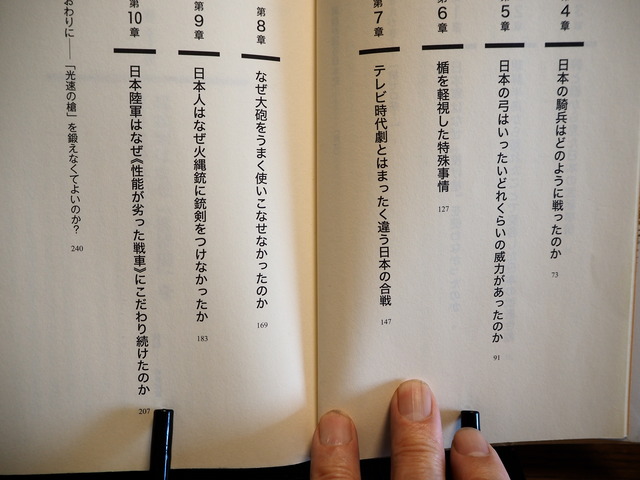 第4章
日本の騎兵はどのように戦ったのか 73
第5章
日本の弓はいったいどれくらいの威力があったのか 91
第6章
楯を軽視した特殊事情 127
第7章
テレビ時代劇とはまったく違う日本の合戦 147
第8章
なぜ大砲をうまく使いこなせなかったのか 169
第9章
日本人はなぜ火縄銃に銃剣をつけなかったか 183
第10章
日本陸軍はなぜ《性能が劣った戦車》にこだわり続けたのか 207
おわりに──「光速の槍」を鍛えなくてよいのか? 240